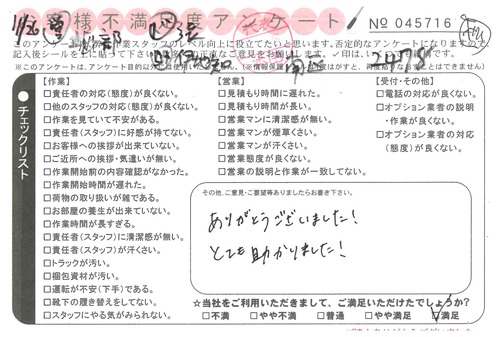 お客様不満足度アンケート
№ 045716
このアンケートは
作業スタッフのレベル向上に役立てたいと思います。否定的なアンケートになりますので
記入後シールを上に貼って下さい
正直なご意見をお願いします。
※このアンケートは、アンケート目的以外
【作業】
□責任者の対応(態度)が良くない。
□他のスタッフの対応(態度)が良くない。
□作業を見ていて不安がある。
□責任者(スタッフ)に好感が持てない。
□お客様への挨拶が出来ていない。
□ご近所への挨拶・気遣いが無い。
□作業開始前の内容確認がなかった。
□作業開始時間が遅れた。
□荷物の取り扱いが雑である。
□お部屋の養生が出来ていない。
□作業時間が長すぎる。
□責任者(スタッフ)に清潔感が無い。
□責任者(スタッフ)が汗くさい。
□トラックが汚い。
□梱包資材が汚い。
□運転が不安(下手)である。
□靴下の履き替えをしてない。
□スタッフにやる気がみられない。
【営業】
□見積もり時間に遅れた。
□見積もり時間が長い。
□営業マンに清潔感が無い。
□営業マンが煙草くさい。
□営業マンが汗くさい。
□営業態度が良くない。
□営業の説明と作業が一致してない。
【受付・その他】
□電話の対応が良くない。
□オプション業者の説明
・作業が良くない。
□オプション業者の対応
(態度)が良くない。
チェックリスト
その他、ご意見・ご要望等ありましたらお書き下さい。
ありがとうございました!
とても助かりました!
☆当社をご利用いただきまして、ご満足いただけたでしょうか?
□不満 □やや不満 □普通 □やや満足 □満足